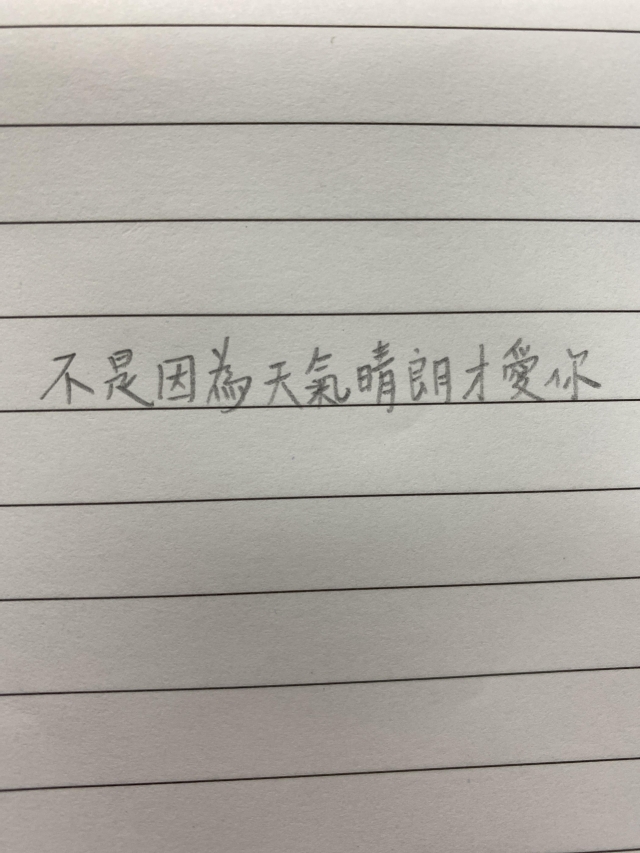 不是因為天氣晴朗才愛你